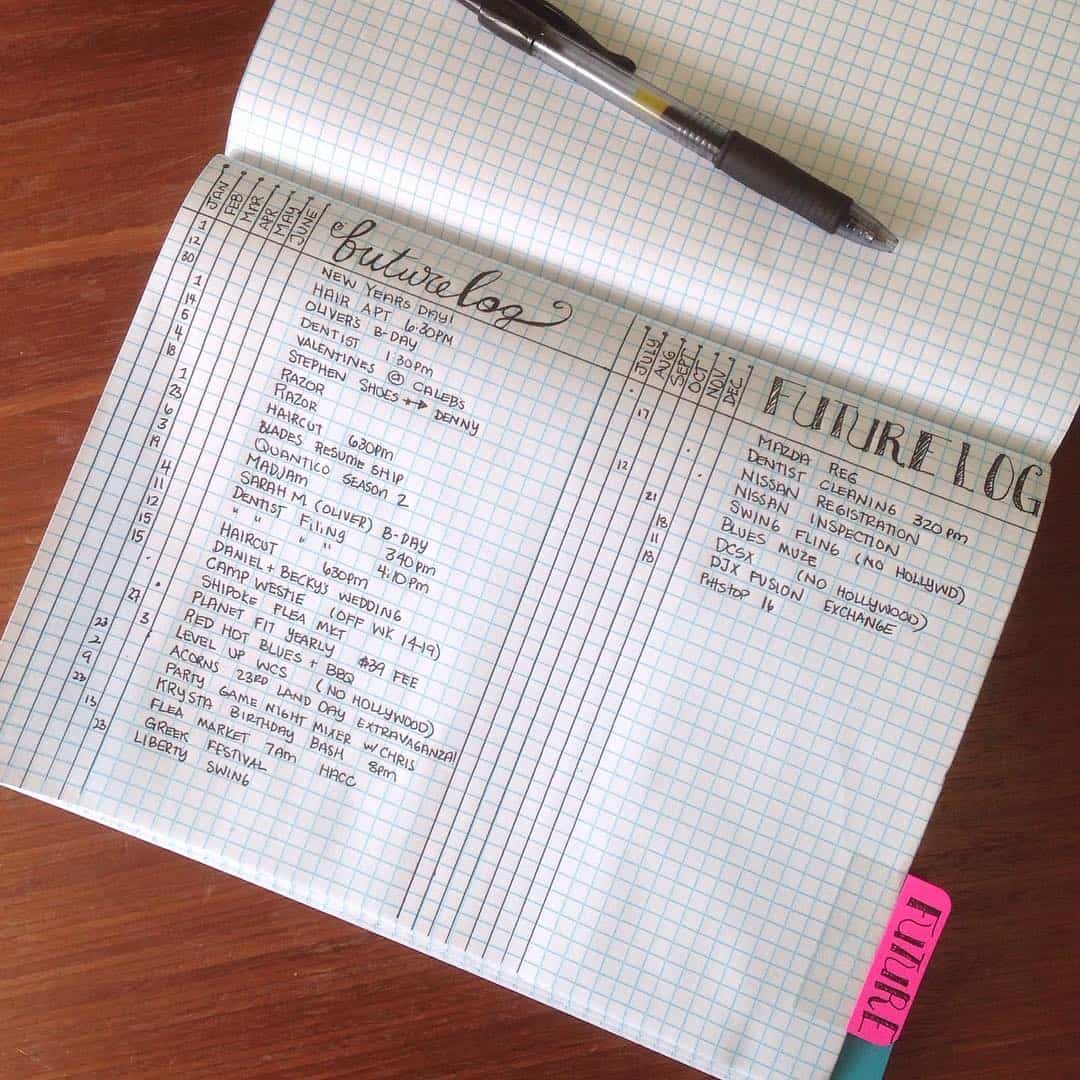 JAN FEB MAR APR MAY JUNE
future log
1 NEW YEARS DAY!
12 HAIR APT 6:30PM
30 OLIVER'S B-DAY
1 DENTIST 1:30PM
14 VALENTINES @ CALEBS
5 STEPHEN SHOES DENNY
4 RAZOR
18 RAZOR
1 HAIRCUT 630PM
23 BLADES RESUME SHIP
6 QUANTICO SEASON 2
3 MADJAM
19 SARAH M. (OLIVER) B-DAY
4 DENTIST FILING 340PM
11 " " " " 4:10PM
12 HAIRCUT 630PM
15 DANIEL + BECKY'S WEDDING
15 CAMP WESTIE (OFF WK 14-19)
SHIPOKE FLEA MKT
PLANET FIT YEARLY $39 FEE
27 RED HOT BLUES + BBQ
3 LEVEL UP WCS (NO HOLLYWOOD)
23 ACORNS 23RD LAND DAY EXTRAVAGANZA!
2 PARTY GAME NIGHT MIXER W/CHRIS
9 KRYSTA BIRTHDAY BASH 8PM
23 FLEA MARKET 7AM HACC
13 GREEK FESTIVAL
23 LIBERTY SWING
JULY AUG SEPT OCT NOV DEC
FUTURE LOG
MAZDA REG
17 DENTIST CLEANING 320 PM
NISSAN REGISTRATION
NISSAN INSPECTION
12 SWING FLING (NO HOLLYWD)
21 BLUES MUZE
18 DCSX (NO HOLLYWOOD)
11 DJX FUSION EXCHANGE
18 PITTSTOP 16
FUTURE